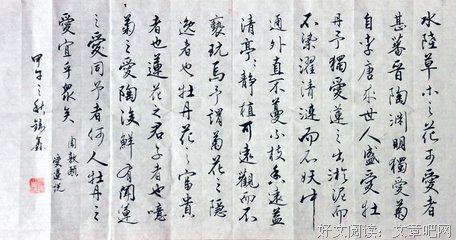 水陸草木之花可愛者
甚蕃晉陶淵明獨愛菊
自李唐來世人盛愛牡
丹予獨愛蓮之出淤泥而
不染濯清漣而不妖中
通外直不蔓不枝香遠益
清亭亭靜植可遠觀而不
褻玩焉予謂菊花之隱
逸者也牡丹花之富貴
者也蓮花之君子者也噫
菊之愛陶後鮮有聞蓮
之愛同予者何人牡丹之
愛宜乎眾矣
周敦頤
愛蓮說
甲午之秋
好文阅读：文章吧网